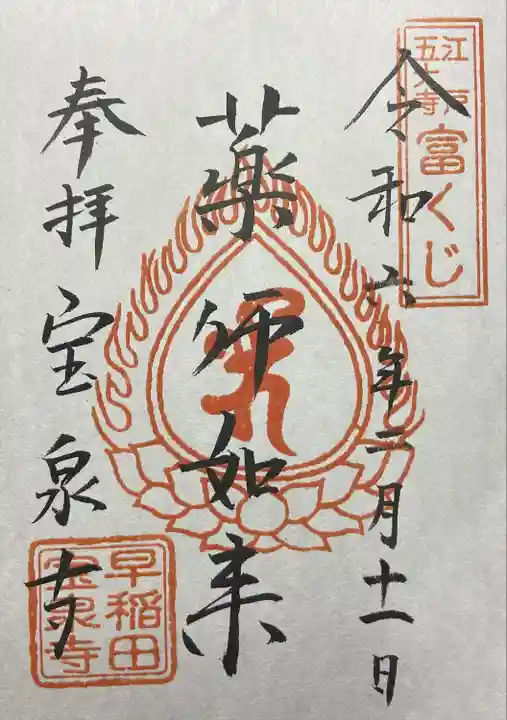 江戸
五大寺
富くじ
令和六年二月十一日
薬師如来
奉拝
宝泉寺
早稲田
宝泉寺